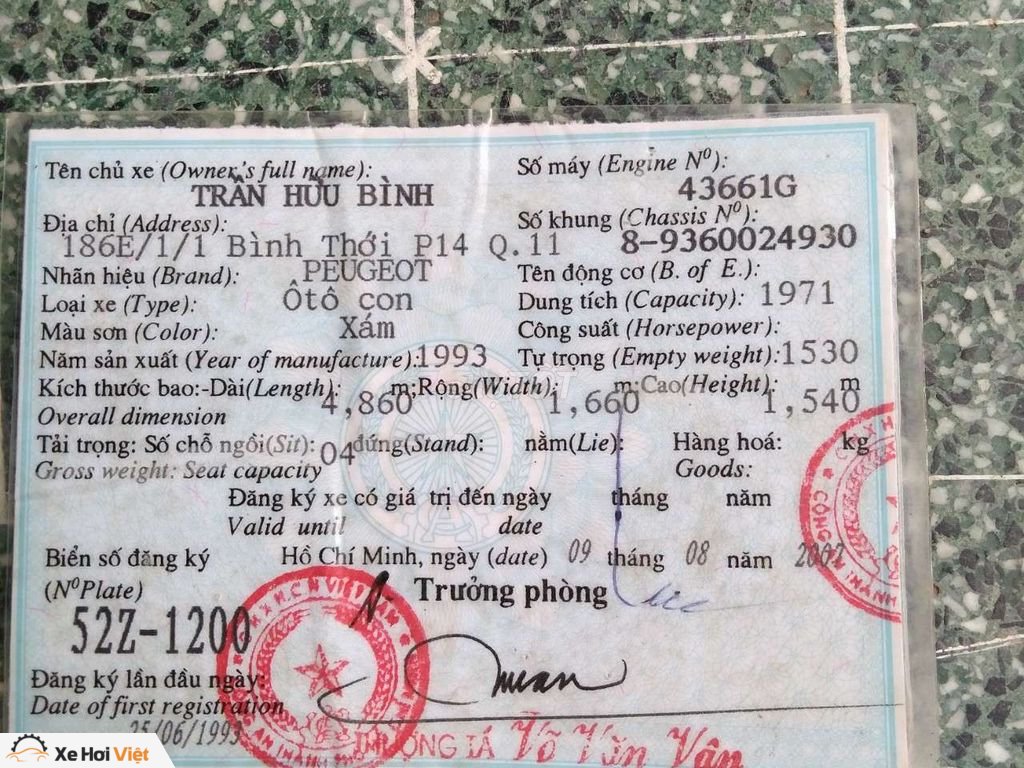 Tên chủ xe (Owner's full name): Số máy (Engine Nº):
TRẦN HỮU BÌNH 43661G
Địa chỉ (Address): Số khung (Chassis Nº):
186E/1/1 Bình Thới P14 Q.11 8-9360024930
Nhãn hiệu (Brand): PEUGEOT Tên động cơ (B. of E.):
Loại xe (Type): Ôtô con Dung tích (Capacity): 1971
Màu sơn (Color): Xám Công suất (Horsepower):
Năm sản xuất (Year of manufacture): 1993 Tự trọng (Empty weight): 1530
Kích thước bao:-Dài(Length): 4,860 m;Rộng(Width): 1,660 m;Cao(Height): 1,540 m
Overall dimension
Tải trọng: Số chỗ ngồi(Sit): 04 đứng(Stand): nằm(Lie): Hàng hoá: kg
Gross weight: Seat capacity Goods:
Đăng ký xe có giá trị đến ngày tháng năm
Valid until date
Biển số đăng ký Hồ Chí Minh, ngày (date) 09 tháng 08 năm
(Nº Plate) Trưởng phòng
52Z-1200
Đăng ký lần đầu ngày:
Date of first registration
25/06/1993
THƯỢNG TÁ Võ Văn Vân
Xe Hơi Việt